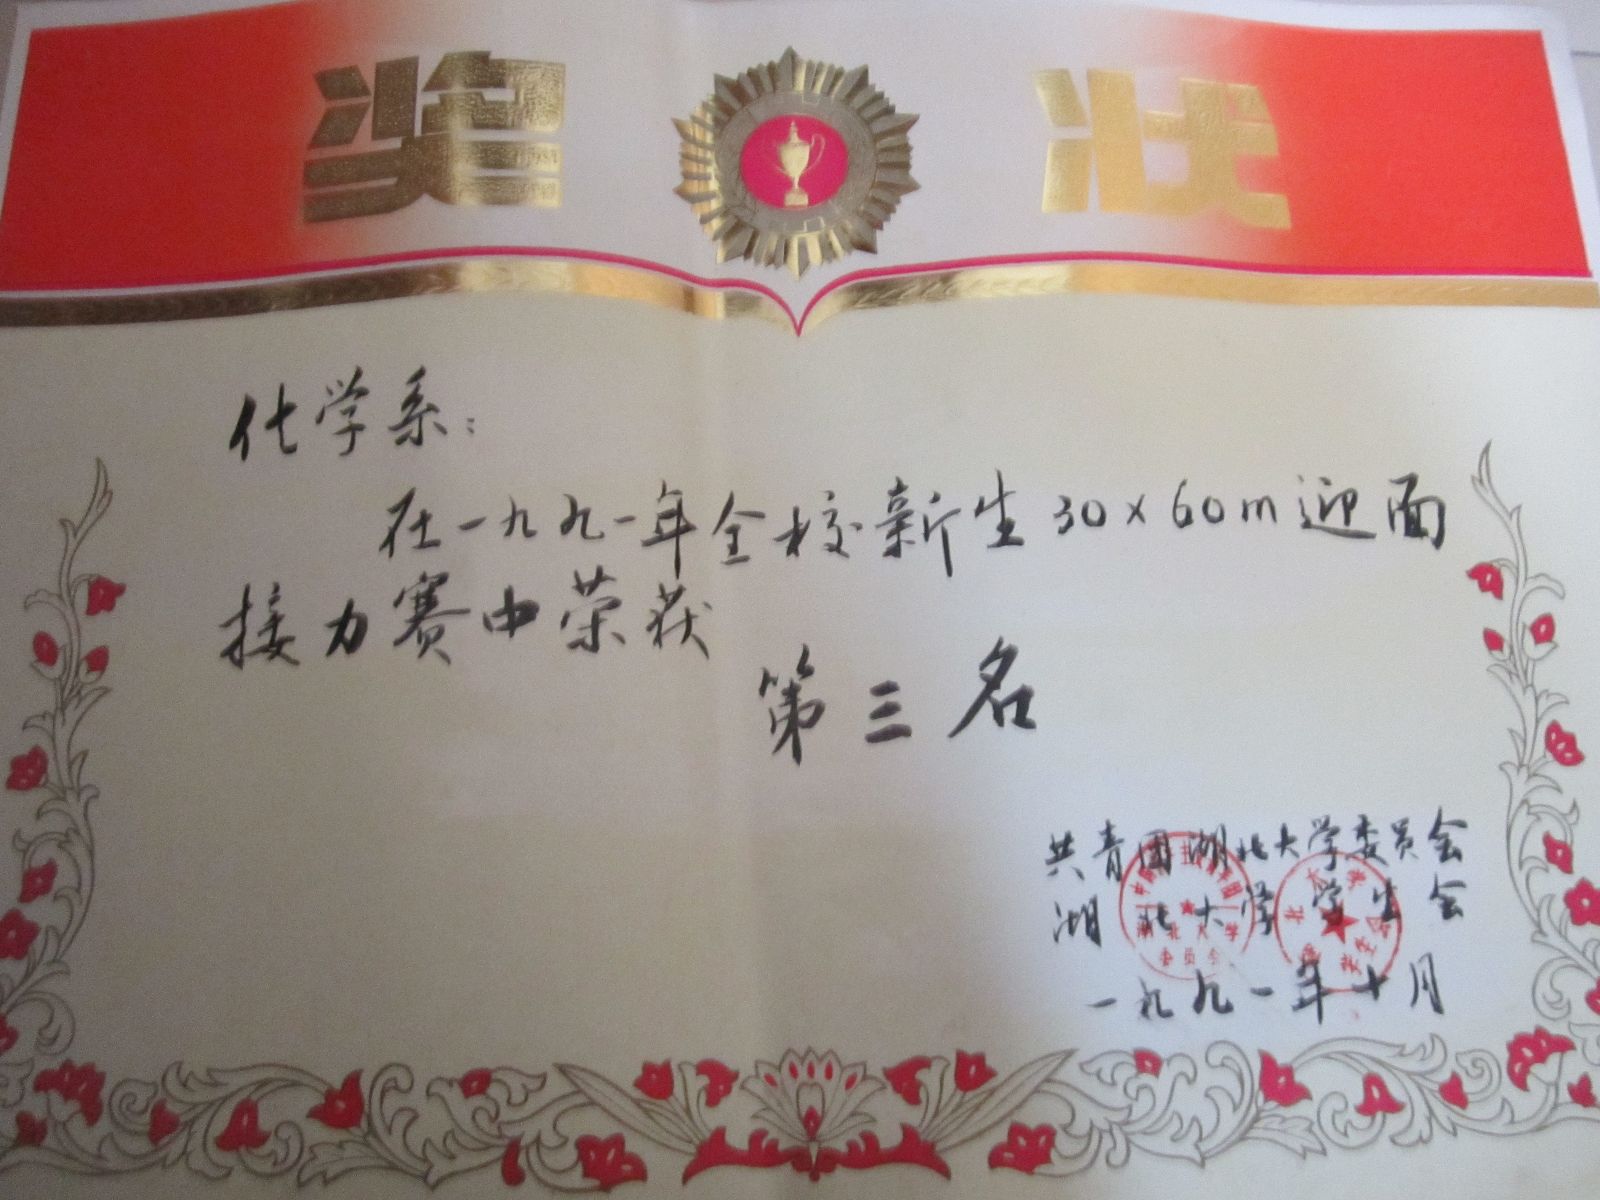 奖状
化学系：
在一九九一年全校新生30×60m迎面
接力赛中荣获
第三名
共青团湖北大学委员会
湖北大学学生会
一九九一年十月